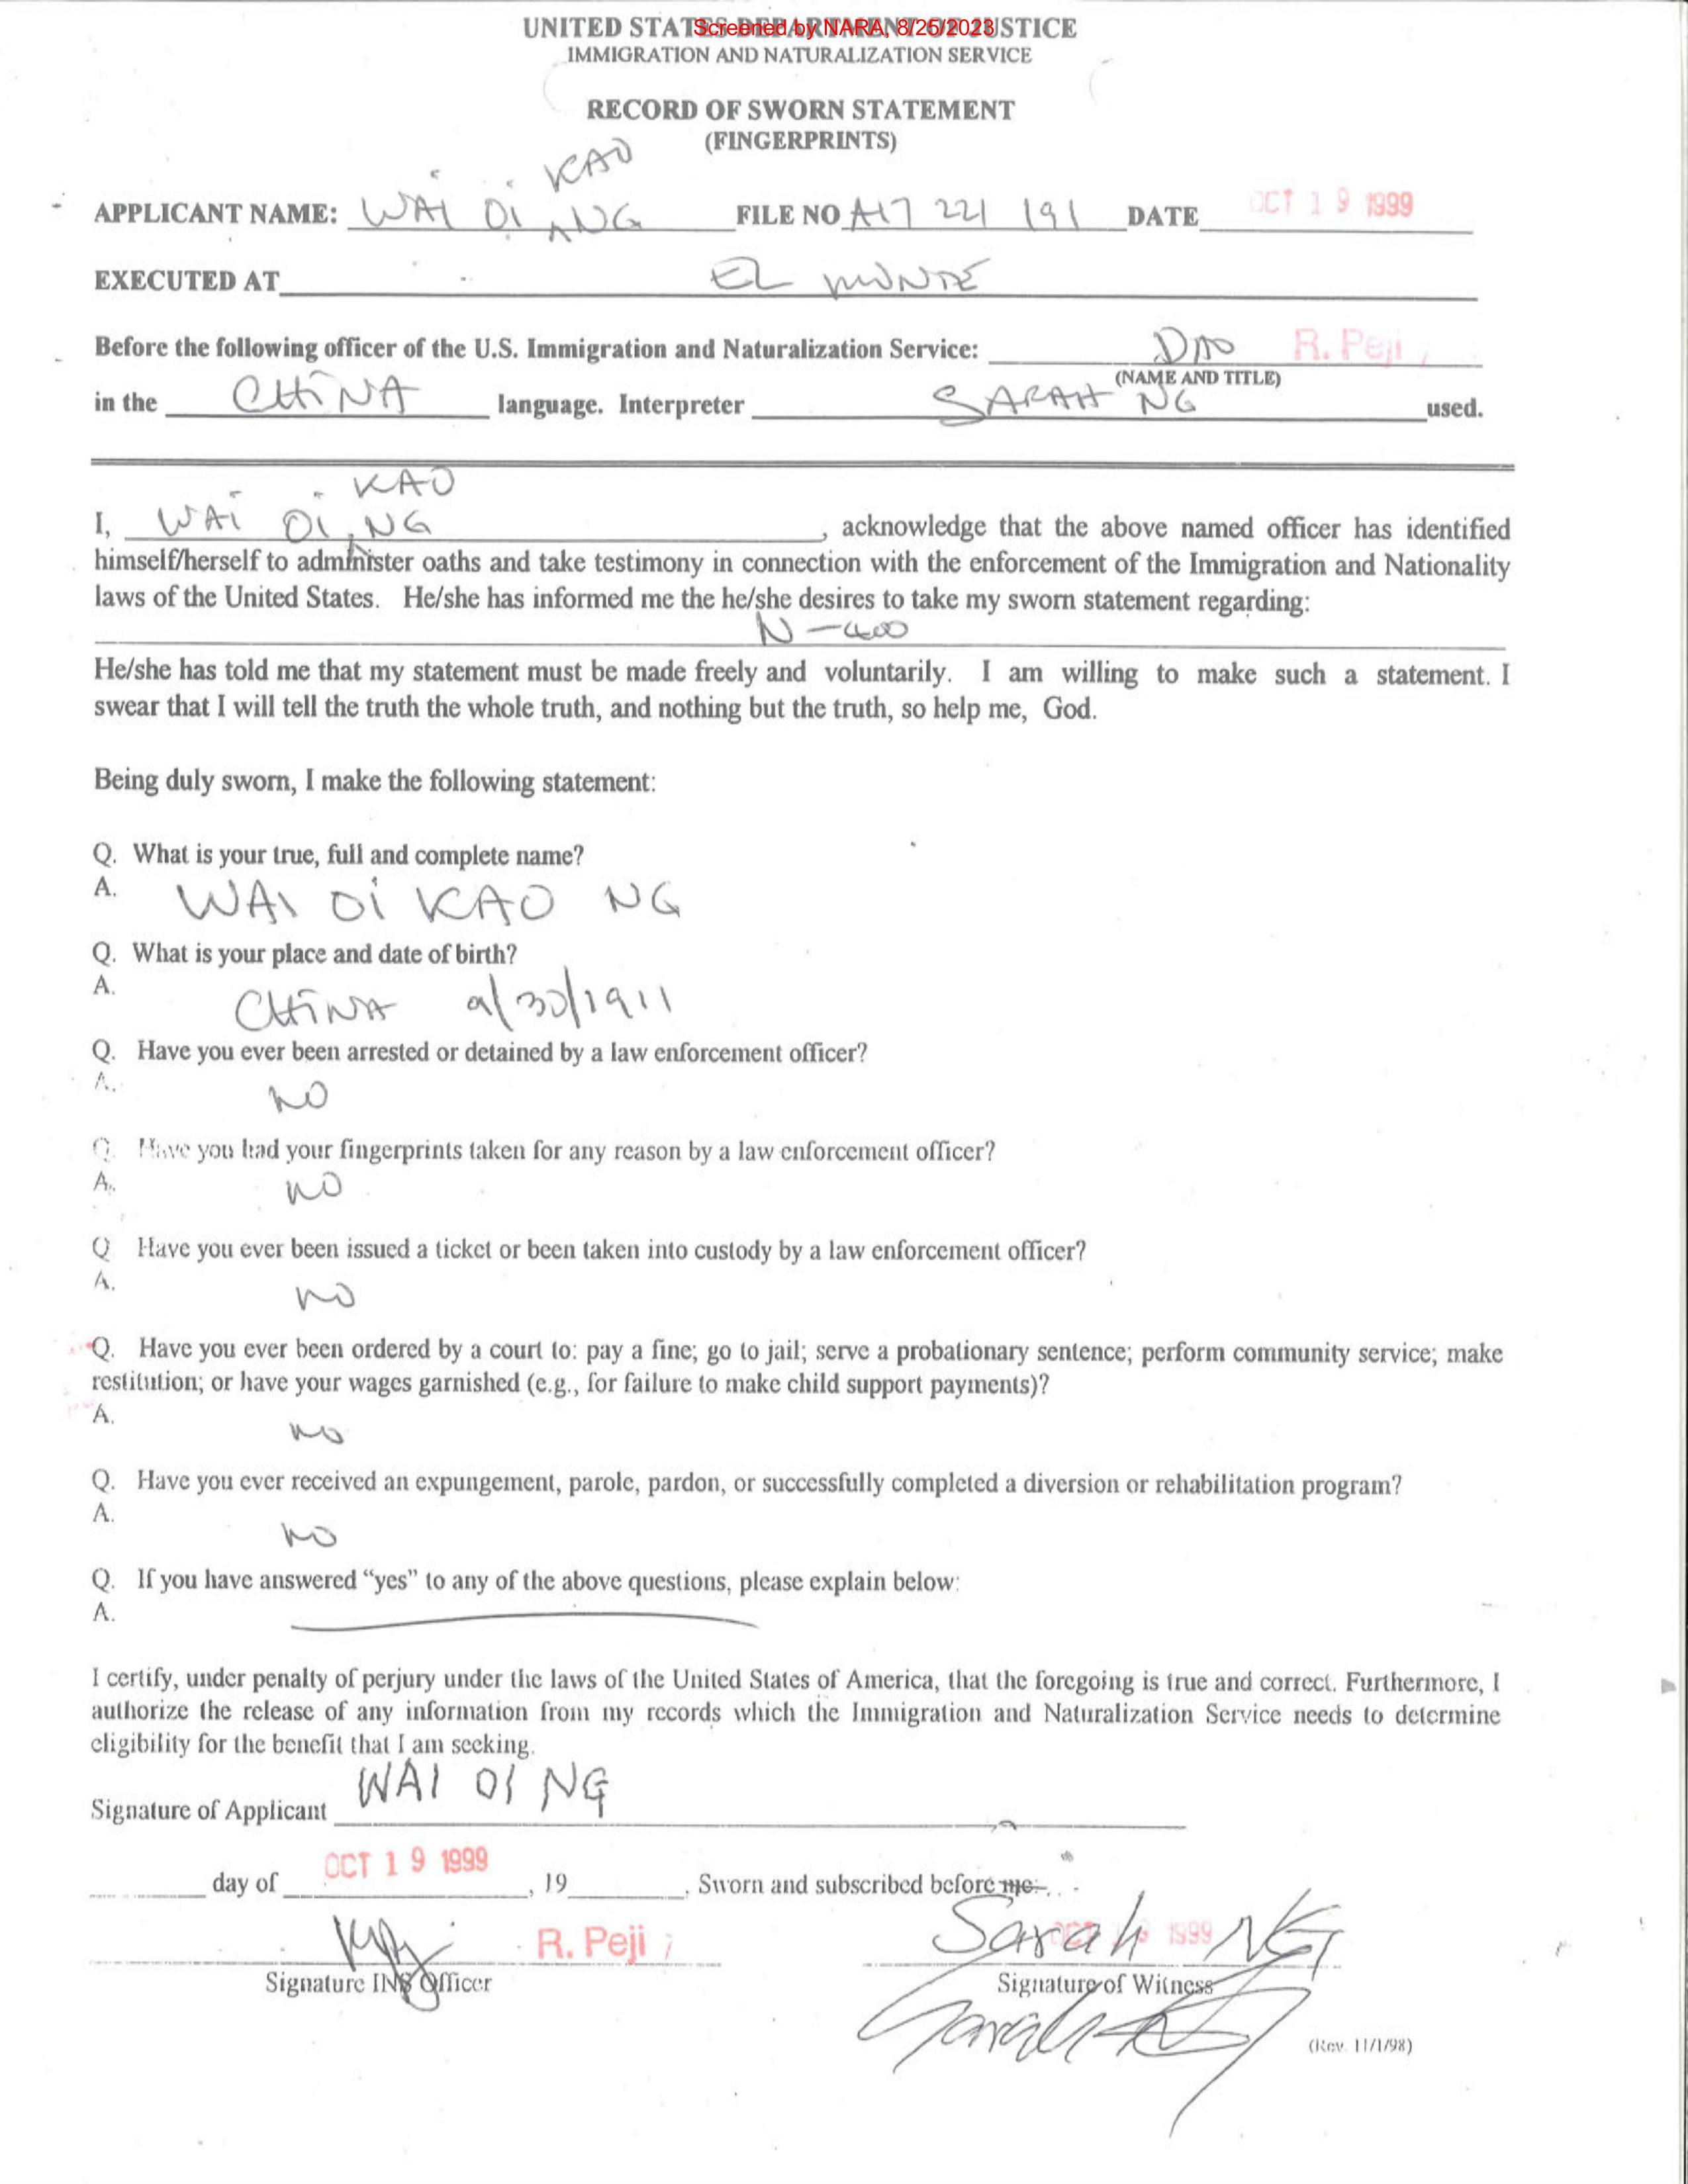 UNITED STATES DEPARTMENT OF JUSTICE
Screened by NARA, 8/25/2023
IMMIGRATION AND NATURALIZATION SERVICE
RECORD OF SWORN STATEMENT
(FINGERPRINTS)
KAO
APPLICANT NAME: WAI OI ^ NG FILE NO A17 221 191 DATE OCT 19 1999
EXECUTED AT EL MONTE
Before the following officer of the U.S. Immigration and Naturalization Service: DAO R. Peji
(NAME AND TITLE)
in the CHINA language. Interpreter SARAH NG used.
KAO
I, WAI OI ^ NG, acknowledge that the above named officer has identified
himself/herself to administer oaths and take testimony in connection with the enforcement of the Immigration and Nationality
laws of the United States. He/she has informed me the he/she desires to take my sworn statement regarding:
N-400
He/she has told me that my statement must be made freely and voluntarily. I am willing to make such a statement. I
swear that I will tell the truth the whole truth, and nothing but the truth, so help me, God.
Being duly sworn, I make the following statement:
Q. What is your true, full and complete name?
A. WAI OI KAO NG
Q. What is your place and date of birth?
A. CHINA 9/30/1911
Q. Have you ever been arrested or detained by a law enforcement officer?
A. NO
Q. Have you had your fingerprints taken for any reason by a law enforcement officer?
A. NO
Q Have you ever been issued a ticket or been taken into custody by a law enforcement officer?
A. NO
Q. Have you ever been ordered by a court to: pay a fine; go to jail; serve a probationary sentence; perform community service; make
restitution; or have your wages garnished (e.g., for failure to make child support payments)?
A. NO
Q. Have you ever received an expungement, parole, pardon, or successfully completed a diversion or rehabilitation program?
A. NO
Q. If you have answered “yes” to any of the above questions, please explain below:
A.
I certify, under penalty of perjury under the laws of the United States of America, that the foregoing is true and correct. Furthermore, I
authorize the release of any information from my records which the Immigration and Naturalization Service needs to determine
eligibility for the benefit that I am seeking.
Signature of Applicant WAI OI NG
day of OCT 19 1999, 19, Sworn and subscribed before me:
R. Peji Sarah NG OCT 19 1999
Signature INS Officer Signature of Witness
(Rev. 11/1/98)